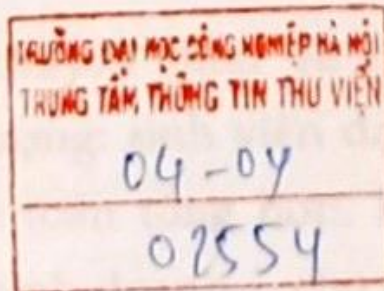 TRƯỜNG ĐẠI HỌC CÔNG NGHIỆP HÀ NỘI
TRUNG TÂM THÔNG TIN THƯ VIỆN
04-04
02554